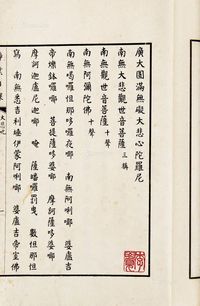 廣大圓滿無礙大悲心陀羅尼
南無大悲觀世音菩薩 三稱
南無觀世音菩薩 十聲
南無阿彌陀佛 十聲
南無喝囉怛那哆囉夜㖿 南無阿唎㖿 婆盧吉
帝爍鉢囉㖿 菩提薩哆婆㖿 摩訶薩哆婆㖿
摩訶迦盧尼迦㖿 唵 薩皤囉罰曳 數怛那怛
寫 南無悉吉利埵伊蒙阿唎㖿 婆盧吉帝室佛